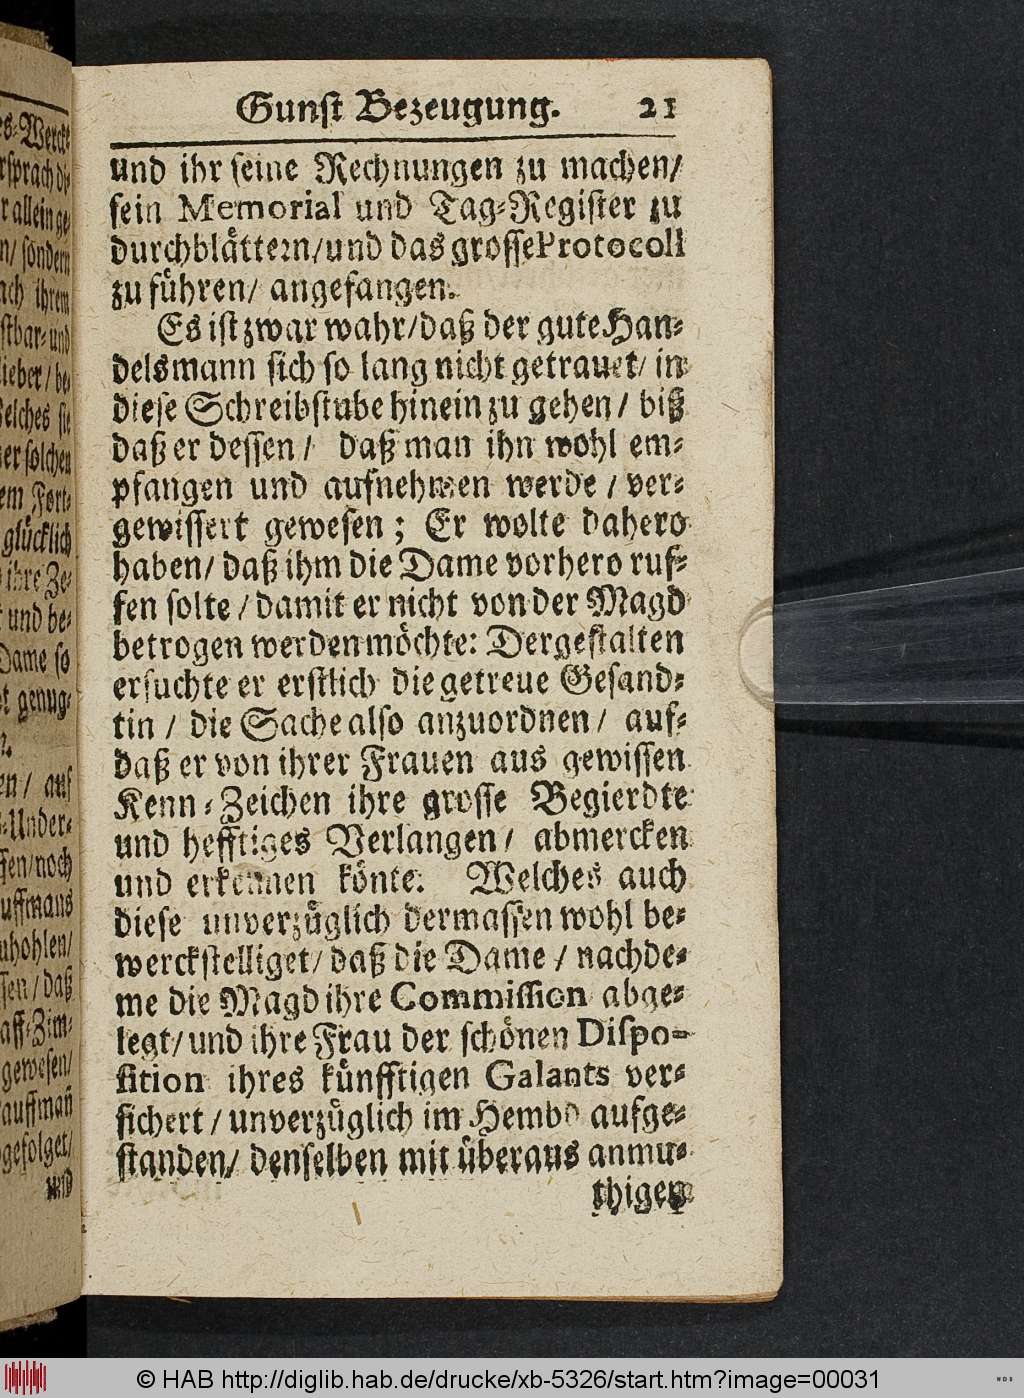 Gunst Bezeugung. 21
und ihr seine Rechnungen zu machen/
sein Memorial und Tag-Register zu
durchblättern/und das grosse Protocoll
zu führen/ angefangen.
Es ist zwar wahr/daß der gute Han-
delsmann sich so lang nicht getrauet/ in
diese Schreibstube hinein zu gehen / biß
daß er dessen / daß man ihn wohl em-
pfangen und aufnehmen werde / ver-
gewissert gewesen; Er wolte dahero
haben/ daß ihm die Dame vorhero ruf-
fen solte / damit er nicht von der Magd
betrogen werden möchte: Dergestalten
ersuchte er erstlich die getreue Gesand-
tin / die Sache also anzuordnen / auf-
daß er von ihrer Frauen aus gewissen
Kenn-Zeichen ihre grosse Begierdte
und hefftiges Verlangen / abmercken
und erkennen könte. Welches auch
diese unverzüglich dermassen wohl be-
werckstelliget/ daß die Dame / nachde-
me die Magd ihre Commission abge-
legt/ und ihre Frau der schönen Dispo-
sition ihres künfftigen Galants ver-
sichert / unverzüglich im Hembd aufge-
standen/ denselben mit überaus anmu-
thigen
es-Werck-
rsprach
r allein ge-
n/ sondern
ach ihrem
stbar- und
lieber / be-
Welches sie
er solchen
em Fort-
glücklich
ihre Ze-
und be-
Dame so
genug-
en / auf
Under-
sen/noch
auffmans
uhohlen/
sen / daß
aff-Zim-
gewesen/
auffmañ
gefolget/
und
© HAB http://diglib.hab.de/drucke/xb-5326/start.htm?image=00031